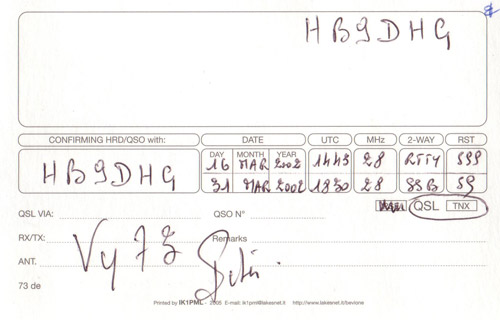 HB9DHG
CONFIRMING HRD/QSO with: DATE UTC MHz 2-WAY RST
DAY MONTH YEAR
HB9DHG 16 MAR 2002 1443 28 RTTY 599
31 MAR 2002 1830 28 SSB 59
QSL VIA: QSO N° QSL TNX
RX/TX: Remarks
Vy 73
ANT.
73 de
Printed by IK1PML - 2005 E-mail: ik1pml@lakesnet.it http://www.lakesnet.it/bevione